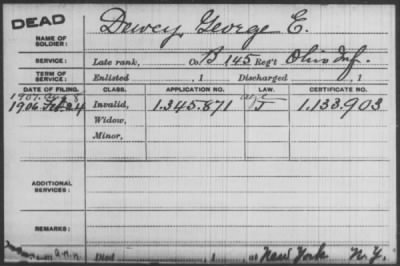 DEAD
NAME OF SOLDIER: Dewey, George E.
SERVICE: Late rank, Co. B 145 Reg't Ohio Inf.
TERM OF SERVICE: Enlisted , 1 Discharged , 1
DATE OF FILING. CLASS. APPLICATION NO. LAW. CERTIFICATE NO.
1907. Aug 8 age
1906 Feb 24 Invalid, 1.345.871 J 1.133.903
Widow,
Minor,
ADDITIONAL SERVICES:
REMARKS:
Died , 1 , at New York N.Y.